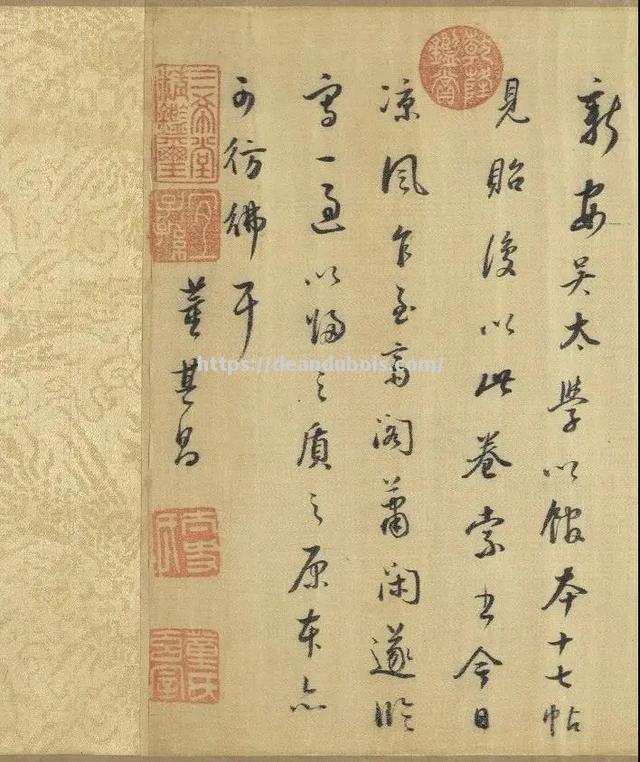 新安吴太學以館本十七帖
見貽復以此卷索書今日
凉風乍至齋閣蕭閑遂臨
寫一過以歸之質之原本亦
可彷彿耳
董其昌
乾隆鑑賞
三希堂精鑑璽
宜子孫
董氏玄宰
https://deandubois.com/